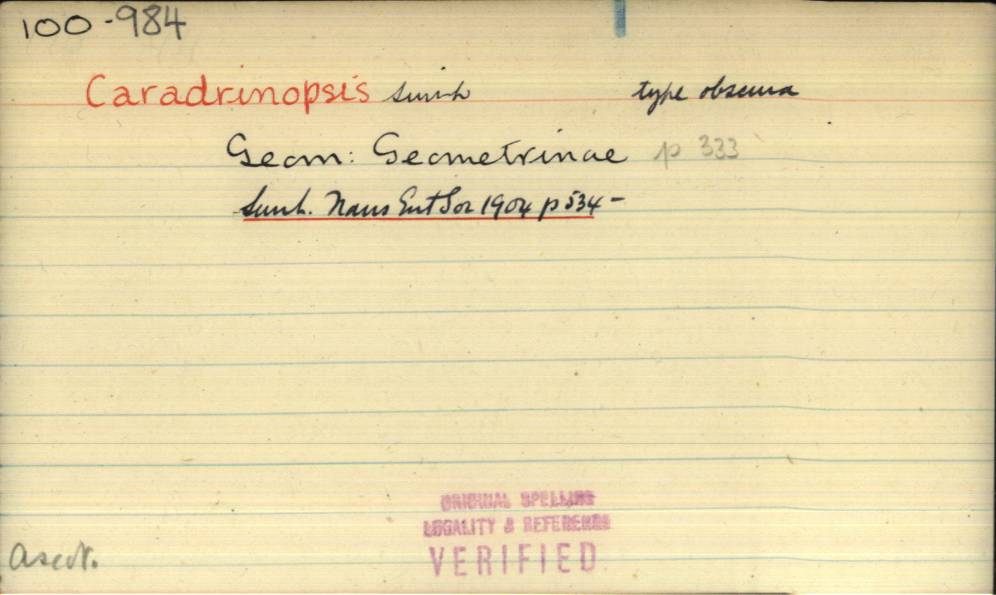 100-984
Caradrinopsis Swinh type obscura
Geom: Geometrinae p 333
Swinh. Trans Ent Soc 1904 p 534-
ORIGINAL SPELLING
LEGALITY & REFERENCE
VERIFIED